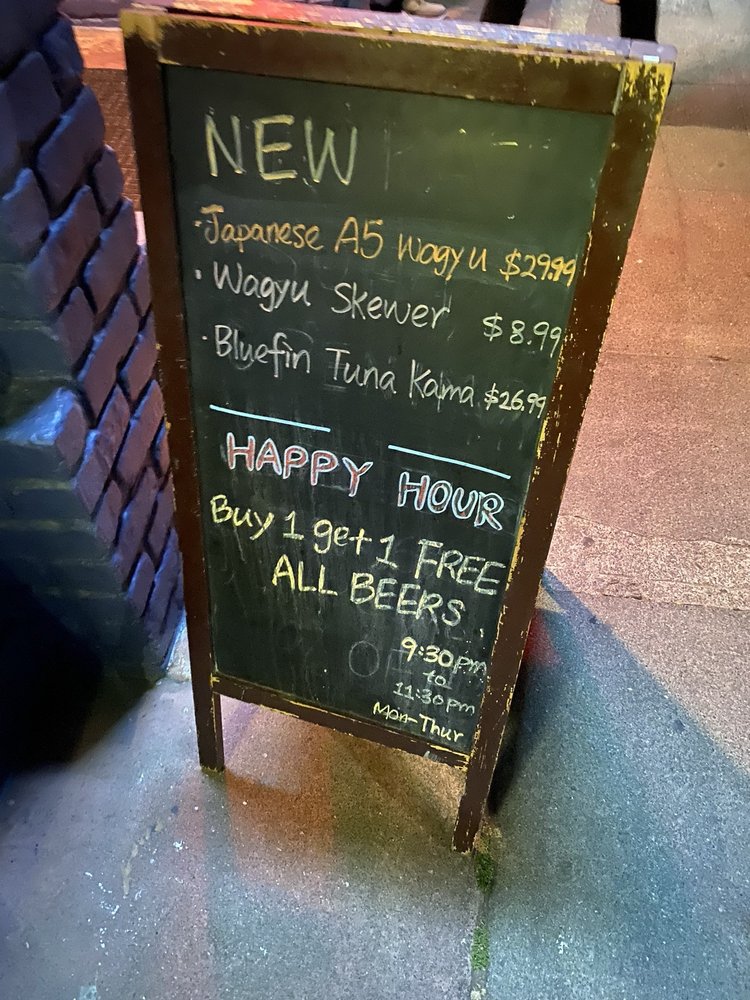 NEW
·Japanese A5 Wagyu $29.99
·Wagyu Skewer $8.99
·Bluefin Tuna Kama $26.99
HAPPY HOUR
Buy 1 get 1 FREE
ALL BEERS
9:30pm
to
11:30pm
Mon-Thur